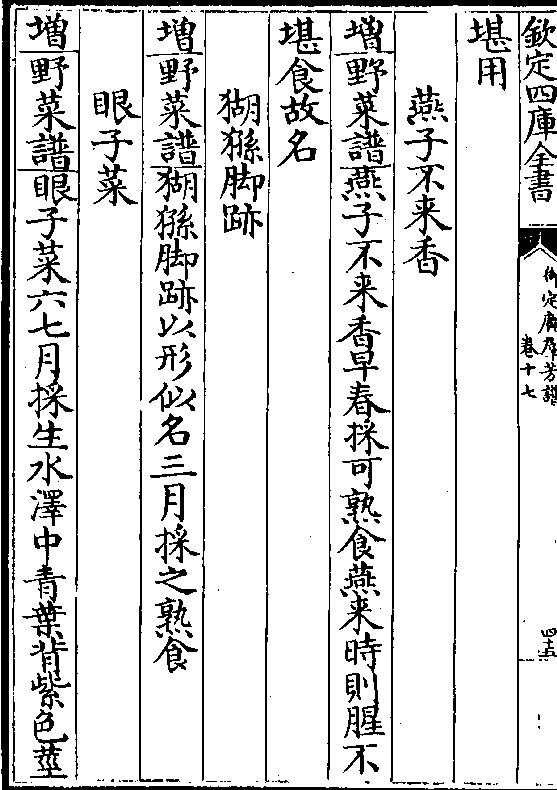 欽定四庫全書
御定廣羣芳譜
卷十七
四十五
堪用
燕子不来香
増野菜譜燕子不来香早春採可熟食燕来時則腥不
堪食故名
猢猻脚跡
増野菜譜猢猻脚跡以形似名三月採之熟食
眼子菜
増野菜譜眼子菜六七月採生水澤中青葉背紫色莖